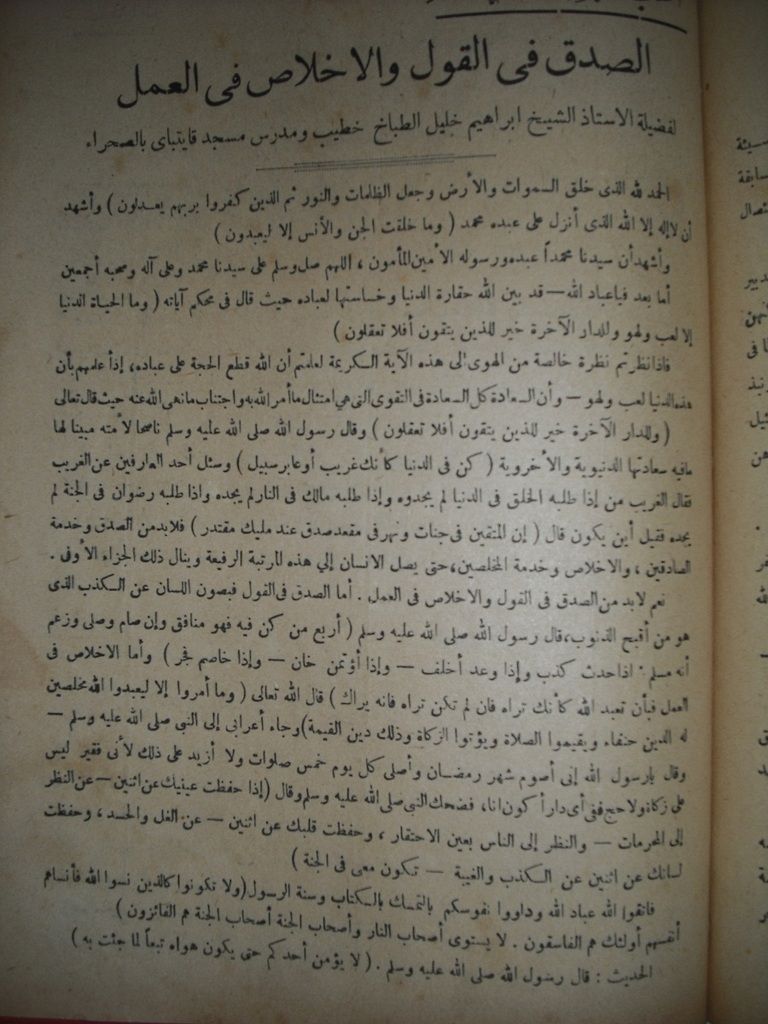 الصدق فى القول والاخلاص فى العمل
لفضيلة الاستاذ الشيخ ابراهيم خليل الطباخ خطيب ومدرس مسجد قايتباى بالصحراء
الحمد لله الذى خلق السموات والأرض وجعل الظلمات والنور ثم الذين كفروا بربهم يعدلون ) وأشهد
أن لا إله إلا الله الذى أنزل على عبده محمد ( وما خلقت الجن والأنس إلا ليعبدون )
وأشهد أن سيدنا محمداً عبده ورسوله الأمين المأمون ، اللهم صل وسلم على سيدنا محمد وعلى آله وصحبه أجمعين
أما بعد فياعباد الله — قد بين الله حقارة الدنيا وخساستها لعباده حيث قال فى محكم آياته ( وما الحياة الدنيا
إلا لعب ولهو وللدار الآخرة خير للذين يتقون أفلا تعقلون )
فاذا نظرتم نظرة خالصة من الهوى الى هذه الآية الكريمة لعلمتم أن الله قطع الحجة على عباده، إذاً علمهم بأن
هذه الدنيا لعب ولهو — وأن السعادة كل السعادة فى التقوى التى هى امتثال ما أمر الله به واجتناب ما نهى الله عنه حيث قال تعالى
( وللدار الآخرة خير للذين يتقون أفلا تعقلون ) وقال رسول الله صلى الله عليه وسلم ناصحا لأمته مبينا لها
مافيه سعادتها الدنيوية والأخروية ( كن فى الدنيا كأنك غريب أو عابر سبيل ) وسئل أحد العارفين عن الغريب
فقال الغريب من إذا طلبه الخلق فى الدنيا لم يجدوه وإذا طلبه مالك فى النار لم يجده واذا طلبه رضوان فى الجنة لم
يجده فقيل أين يكون قال ( إن المتقين فى جنات ونهر فى مقعد صدق عند مليك مقتدر ) فلابد من الصدق وخدمة
الصادقين ، والاخلاص وخدمة المخلصين، حتى يصل الانسان إلي هذه المرتبة الرفيعة وينال ذلك الجزاء الأوفى .
نعم لابد من الصدق فى القول والاخلاص فى العمل . أما الصدق فى القول فبصون اللسان عن الكذب الذى
هو من أقبح الذنوب، قال رسول الله صلى الله عليه وسلم ( أربع من كن فيه فهو منافق وإن صام وصلى وزعم
أنه مسلم : اذا حدث كذب وإذا وعد أخلف — وإذا أؤتمن خان — وإذا خاصم فجر ) وأما الاخلاص فى
العمل فبأن تعبد الله كأنك تراه فان لم تكن تراه فانه يراك ) قال الله تعالى ( وما أمروا إلا ليعبدوا الله مخلصين
له الدين حنفاء ويقيموا الصلاة ويؤتوا الزكاة وذلك دين القيمة) وجاء أعرابى إلى النبى صلى الله عليه وسلم —
وقال يارسول الله إنى أصوم شهر رمضان وأصلى كل يوم خمس صلوات ولا أزيد على ذلك لأنى فقير ليس
على زكاة ولا حج ففى أى دار أكون انا، فضحك النبى صلى الله عليه وسلم وقال (إذا حفظت عينيك عن اثنين — عن النظر
إلى المحرمات — والنظر إلى الناس بعين الاحتقار ، وحفظت قلبك عن اثنين — عن الغل والحسد ، وحفظت
لسانك عن اثنين عن الكذب والغيبة — تكون معى فى الجنة )
فاتقوا الله عباد الله وداووا نفوسكم بالتمسك بالكتاب وسنة الرسول (ولا تكونوا كالذين نسوا الله فأنساهم
أنفسهم أولئك هم الفاسقون . لا يستوى أصحاب النار وأصحاب الجنة أصحاب الجنة هم الفائزون )
الحديث : قال رسول الله صلى الله عليه وسلم . ( لا يؤمن أحدكم حتى يكون هواه تبعاً لما جئت به )